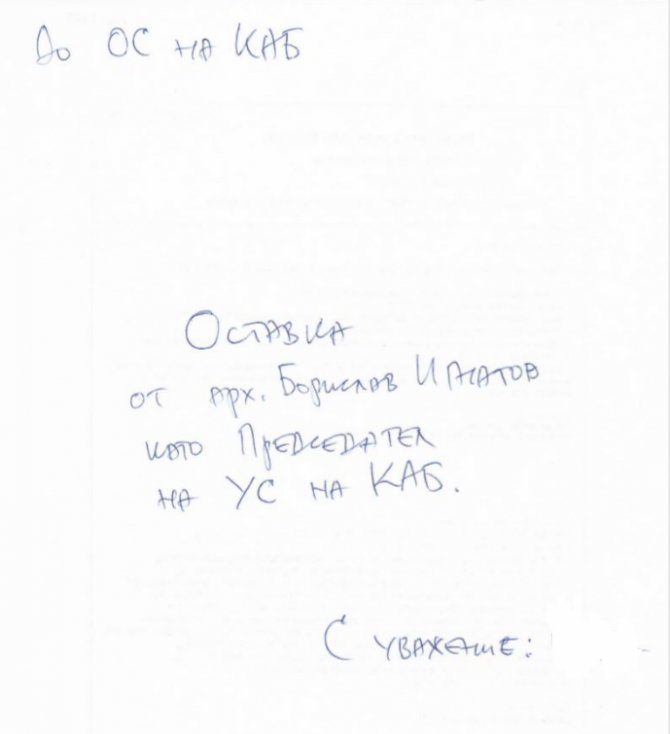 До ОС на КАБ
Оставка
от арх. Борислав Игнатов
като Председател
на УС на КАБ.
С уважение: